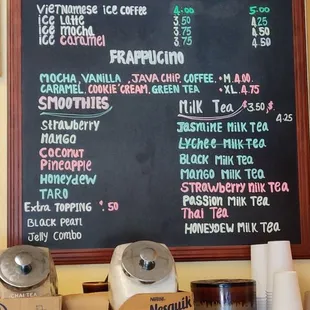 Vietnamese Ice Coffee 4.00 5.00
Ice Latte 3.50 4.25
Ice Mocha 3.75 4.50
Ice Caramel 3.75 4.50
Frappucino
Mocha, Vanilla, Java Chip, Coffee. • M. 4.00
Caramel, Cookie 'Cream, Green Tea • XL. 4.75
Smoothies
Strawberry
Mango
Coconut
Pineapple
Honeydew
Taro
Extra Topping $.50
Black Pearl
Jelly Combo
Milk Tea $3.50 &
4.25
Jasmine Milk Tea
Lychee Milk Tea
Black Milk Tea
Mango Milk Tea
Strawberry Milk Tea
Passion Milk Tea
Thai Tea
Honeydew Milk Tea
Nesquik